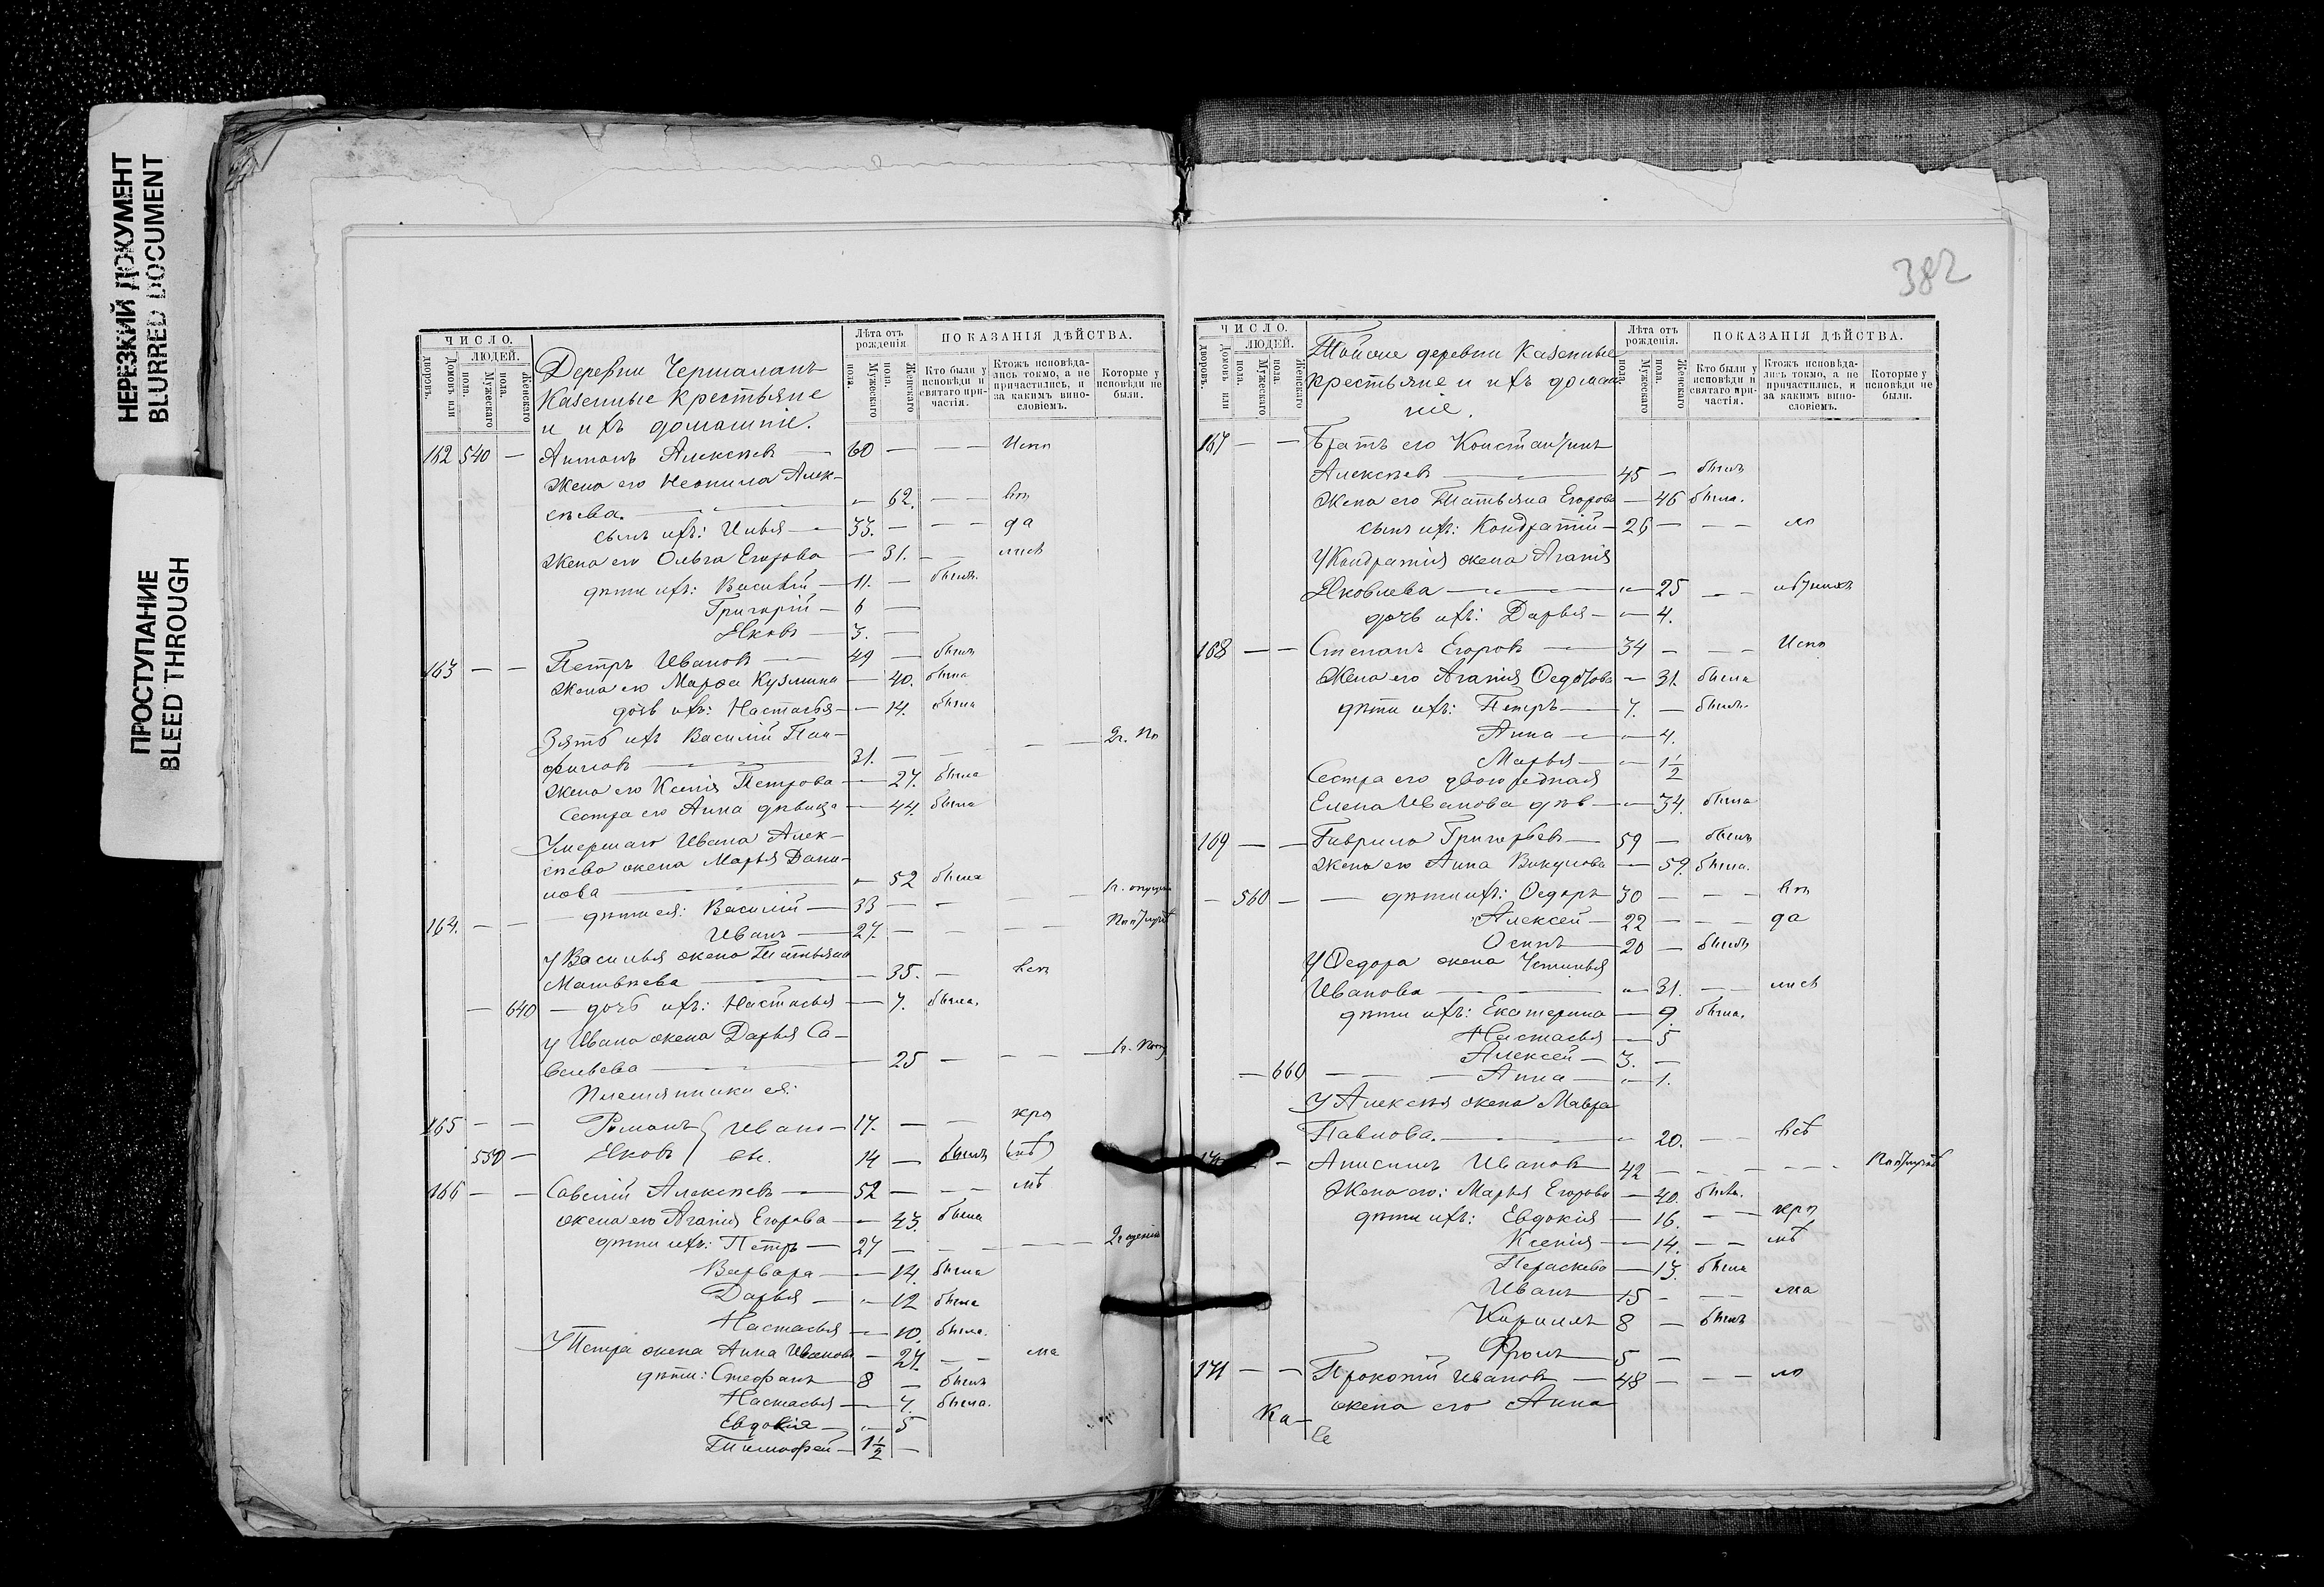 НЕРЕЗКИЙ ДОКУМЕНТ
BLURRED DOCUMENT
ПРОСТУПАНИЕ
BLEED THROUGH
ЧИСЛО.
ЛЮДЕЙ.
Дворовъ.
Домовъ или
Мужескаго пола.
Женскаго пола.
Деревни
Казенные крестьяне
и ихъ домашніе.
Лѣта отъ рожденія
Мужескаго пола.
Женскаго пола.
ПОКАЗАНІЯ ДѢЙСТВА.
Кто были у исповѣди и святаго причастія.
Ктожъ исповѣдались токмо, а не причастились, и за какимъ винословіемъ.
Которые у исповѣди не были.
162 540 — Антонъ Алексѣевъ — 60 — — — Испо
Жена его Неонила Алек-
сѣева. — 62. — — вп
сынъ ихъ: Илья — 33. — — — да
Жена его Ольга Егорова — 31. — —
дѣти ихъ: Василій — 11. — былъ.
Григорій — 6 —
Яковъ — 3. —
163 — — Петръ Ивановъ — 49 — былъ
Жена его Марѳа Кузмина — 40. была
дочь ихъ: Настасья — 14. была
Зять ихъ Василій Пан-
филовъ — 31. — — — 2г. по
Жена его Ксенія Петрова — 27. была
Сестра его Анна дѣвица — 44. была
Умершаго Ивана Алек-
сѣева жена Марья Дани-
лова — 52 была
164. — — дѣти ея: Василій — 33 — — —
Иванъ — 27. — — —
У Василья жена Татьяна
Матвѣева — 35. —
— 640 — дочь ихъ: Настасья — 7. была.
У Ивана жена Дарья Са-
вельева — 25 — — —
Племянники ея:
165 — — Романъ Ивано- 17. — — кро
550 — Яковъ вы. 14 — былъ (мѣ)
166 — — Савелій Алексѣевъ — 52 — — — мѣ
жена его Агапія Егорова — 43. была
дѣти ихъ: Петръ — 27 — — —
Варвара — 14. была
Дарья — 12 была
Настасья — 10. была.
У Петра жена Анна Иванова — 27. — — ма
дѣти: Стефанъ — 8 — былъ
Настасья — 7. была.
Евдокія — 5
Тимофей — 1½ —
382
ЧИСЛО.
ЛЮДЕЙ.
Дворовъ.
Домовъ или
Мужескаго пола.
Женскаго пола.
Тойже деревни Казенные
крестьяне и ихъ домаш-
ніе.
Лѣта отъ рожденія.
Мужескаго пола.
Женскаго пола.
ПОКАЗАНІЯ ДѢЙСТВА.
Кто были у исповѣди и святаго причастія.
Ктожъ исповѣдались токмо, а не причастились, и за какимъ винословіемъ.
Которые у исповѣди не были.
167 — — Братъ его Константинъ
Алексѣевъ — 45 — былъ
Жена его Татьяна Егорова — 46 была.
сынъ ихъ: Кондратій — 26 — — — ло
У Кондратія жена Агапія
Яковлева — 25 — —
дочь ихъ: Дарья — 4.
168 — — Степанъ Егоровъ — 34 — — — Испо
Жена его Агапія Ѳедотова — 31. была
дѣти ихъ: Петръ — 7. — былъ.
Анна — 4.
Марья — 1½
Сестра его двоюродная
Елена Иванова дѣв — 34. была
169 — — Гаврило Григорьевъ — 59 — былъ
Жена его Анна Викулова — 59. была.
— 560 — — дѣти ихъ: Ѳедоръ 30 — — — вп
Алексей — 22 — — — да
Осипъ — 20 — былъ
У Ѳедора жена Устинья
Иванова — 31. — —
дѣти ихъ: Екатерина — 9. была.
Настасья — 5
Алексей — 3. —
— 660 — — Анна — 1.
У Алексѣя жена Мавра
Павлова. — 20. — —
Анисимъ Ивановъ 42 — — —
Жена его: Марья Егорова — 40. была.
дѣти ихъ: Евдокія — 16. — — кро
Ксенія — 14. — — мѣ
Параскева — 13. была
Иванъ 15 — — — ма
Кириллъ 8 — былъ
Фролъ 5 —
171 — — Прокопій Ивановъ — 48 — — — ло
жена его Анна
Ка-